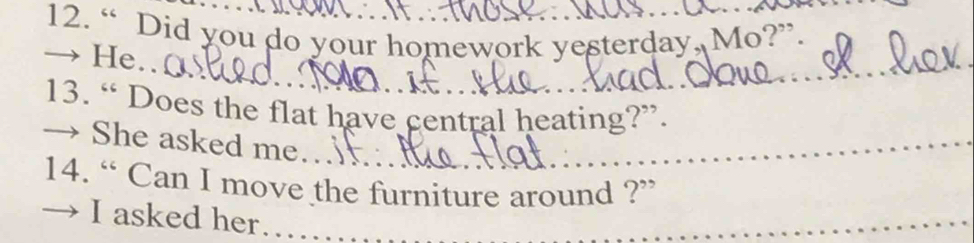 if those has a
12. “ Did you do your homework yesterday, Mo?”.
→ He..asked Mo if she had done of her
13. “ Does the flat have central heating?”.
→ She asked me...if the flat
14. “ Can I move the furniture around ?”
→ I asked her